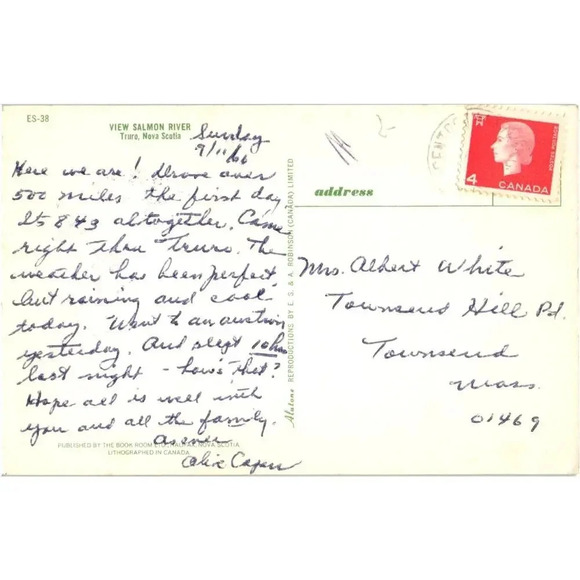 ES-38
VIEW SALMON RIVER
Truro, Nova Scotia
Sunday
9/11/66
Here we are! Drove over
500 miles the first day
843 altogether. Came
right thru Truro. The
weather has been perfect,
but raining and cool
today. Went to an auction
yesterday. And slept 10 hrs
last night - how's that?
Hope all is well with
you and all the family.
As ever
PUBLISHED BY THE BOOK ROOM LTD., HALIFAX, NOVA SCOTIA
LITHOGRAPHED IN CANADA
Alatone REPRODUCTIONS BY E. G. & A. ROBINSON (CANADA) LIMITED
address
4
CANADA
Mrs. Albert White
Townsend Hill Rd.
Townsend
Mass.
01469